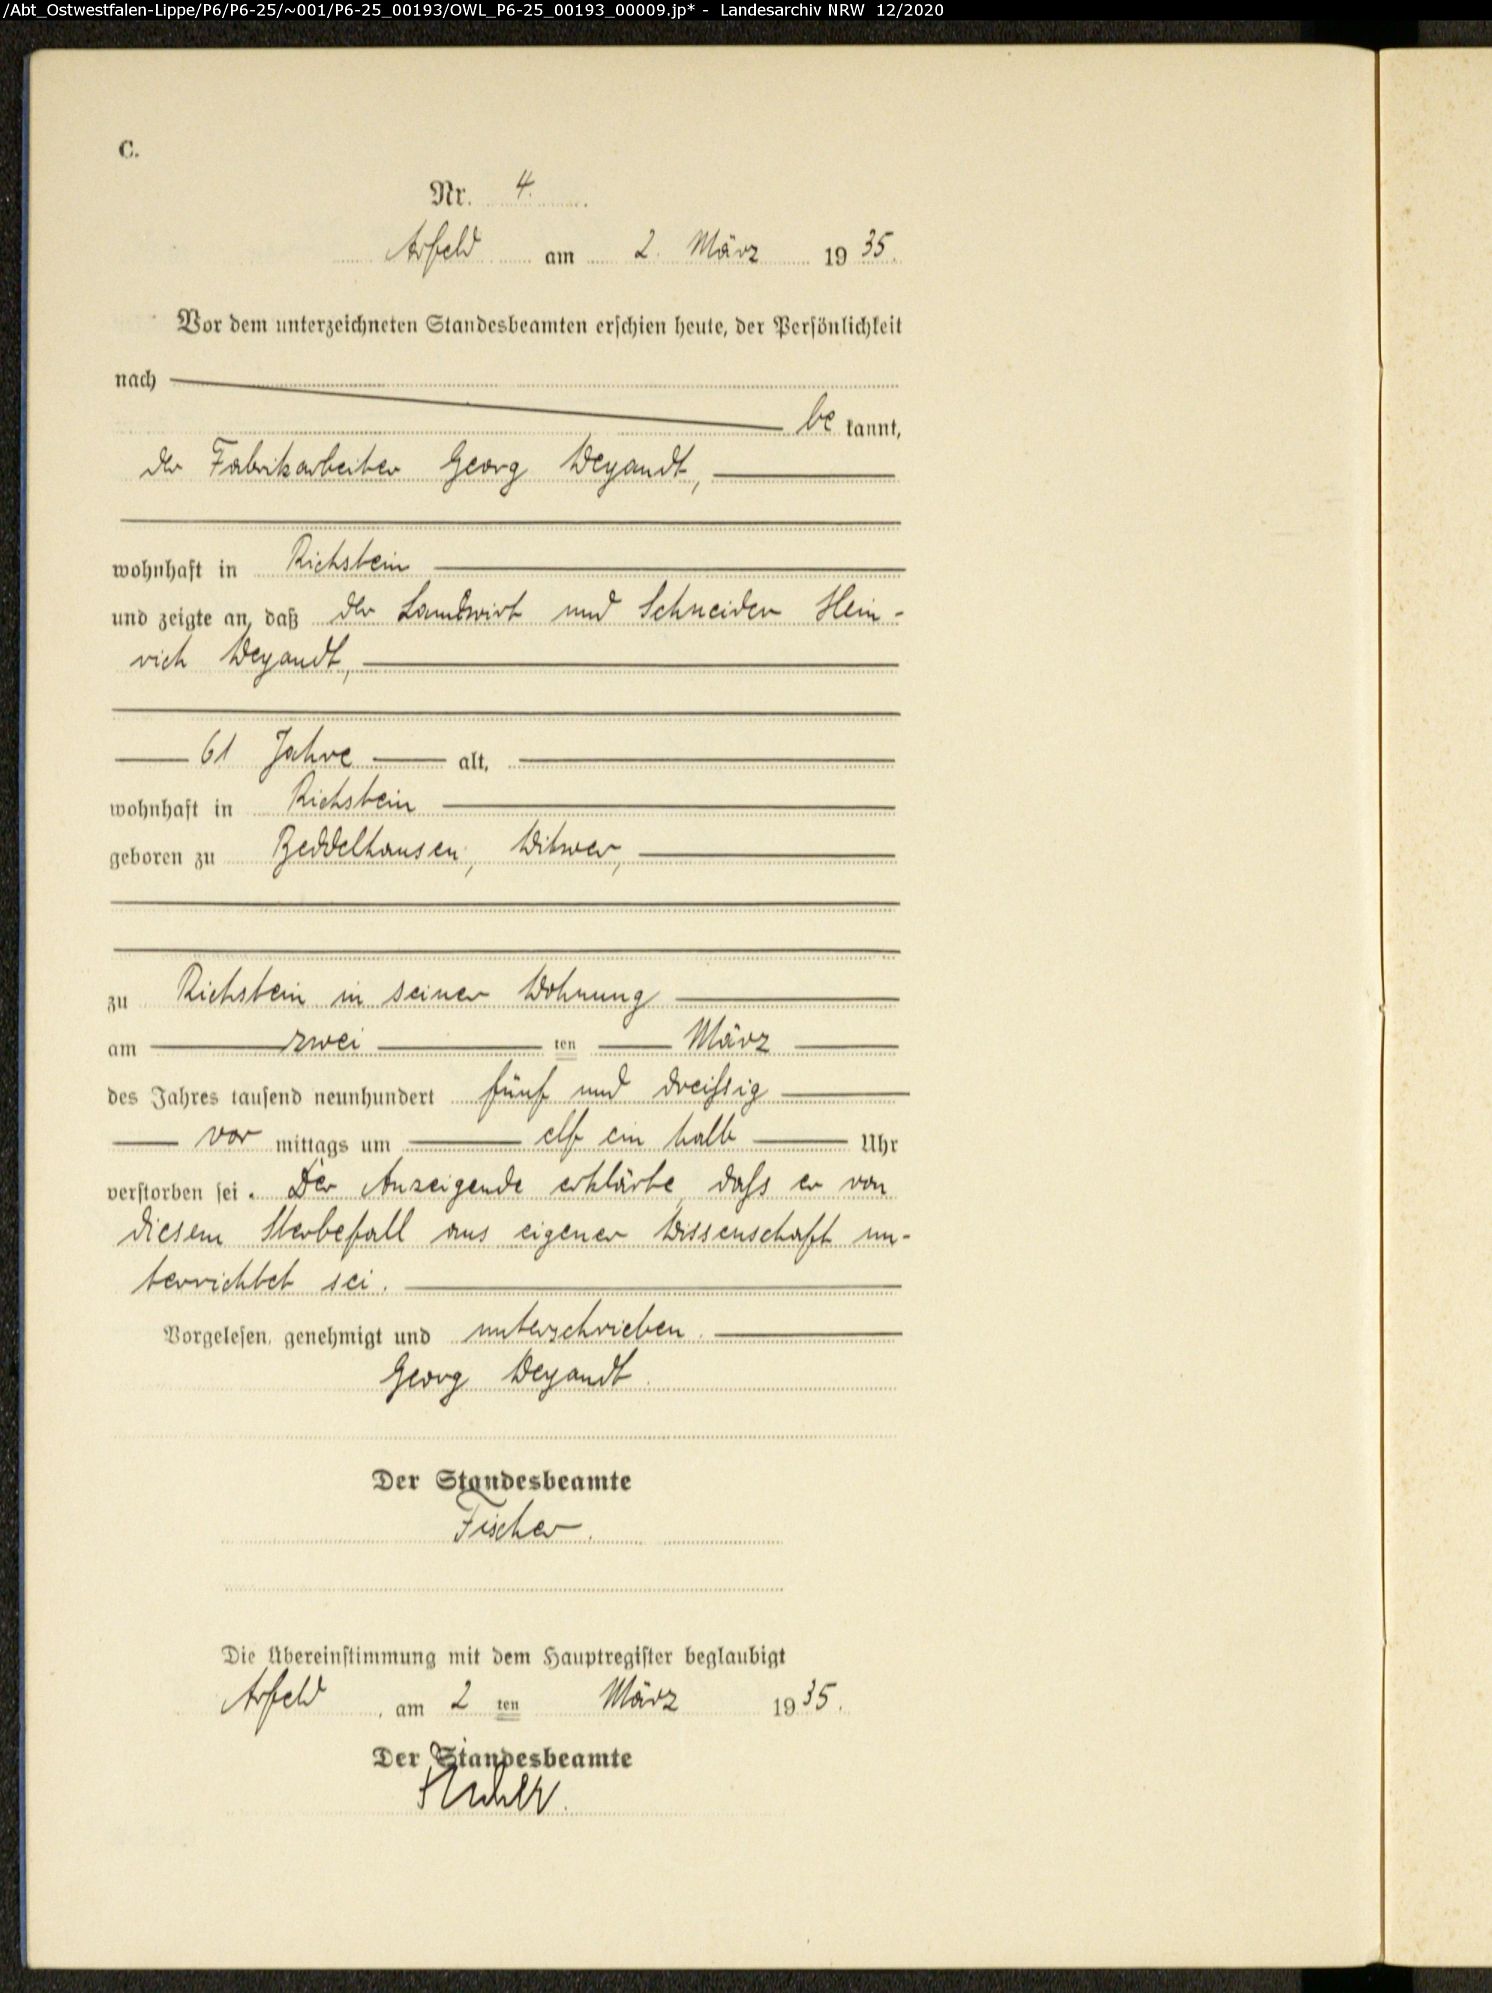 /Abt_Ostwestfalen-Lippe/P6/P6-25/~001/P6-25_00193/OWL_P6-25_00193_00009.jp* - Landesarchiv NRW 12/2020
C.
Nr. 4.
Arfeld am 2. März 1935.
Vor dem unterzeichneten Standesbeamten erschien heute, der Persönlichkeit
nach
be kannt,
der Fabrikarbeiter Georg Weyandt,
wohnhaft in Richstein
und zeigte an, daß der Landwirt und Schneider Hein-
rich Weyandt,
61 Jahre alt,
wohnhaft in Richstein
geboren zu Beddelhausen, Witwer,
zu Richstein in seiner Wohnung
am zwei ten März
des Jahres tausend neunhundert fünf und dreißig
vor mittags um elf ein halb Uhr
verstorben sei. Der Anzeigende erklärte, daß er von
diesem Sterbefall aus eigener Wissenschaft un-
terrichtet sei.
Vorgelesen, genehmigt und unterschrieben.
Georg Weyandt.
Der Standesbeamte
Fischer.
Die Übereinstimmung mit dem Hauptregister beglaubigt
Arfeld, am 2 ten März 1935.
Der Standesbeamte